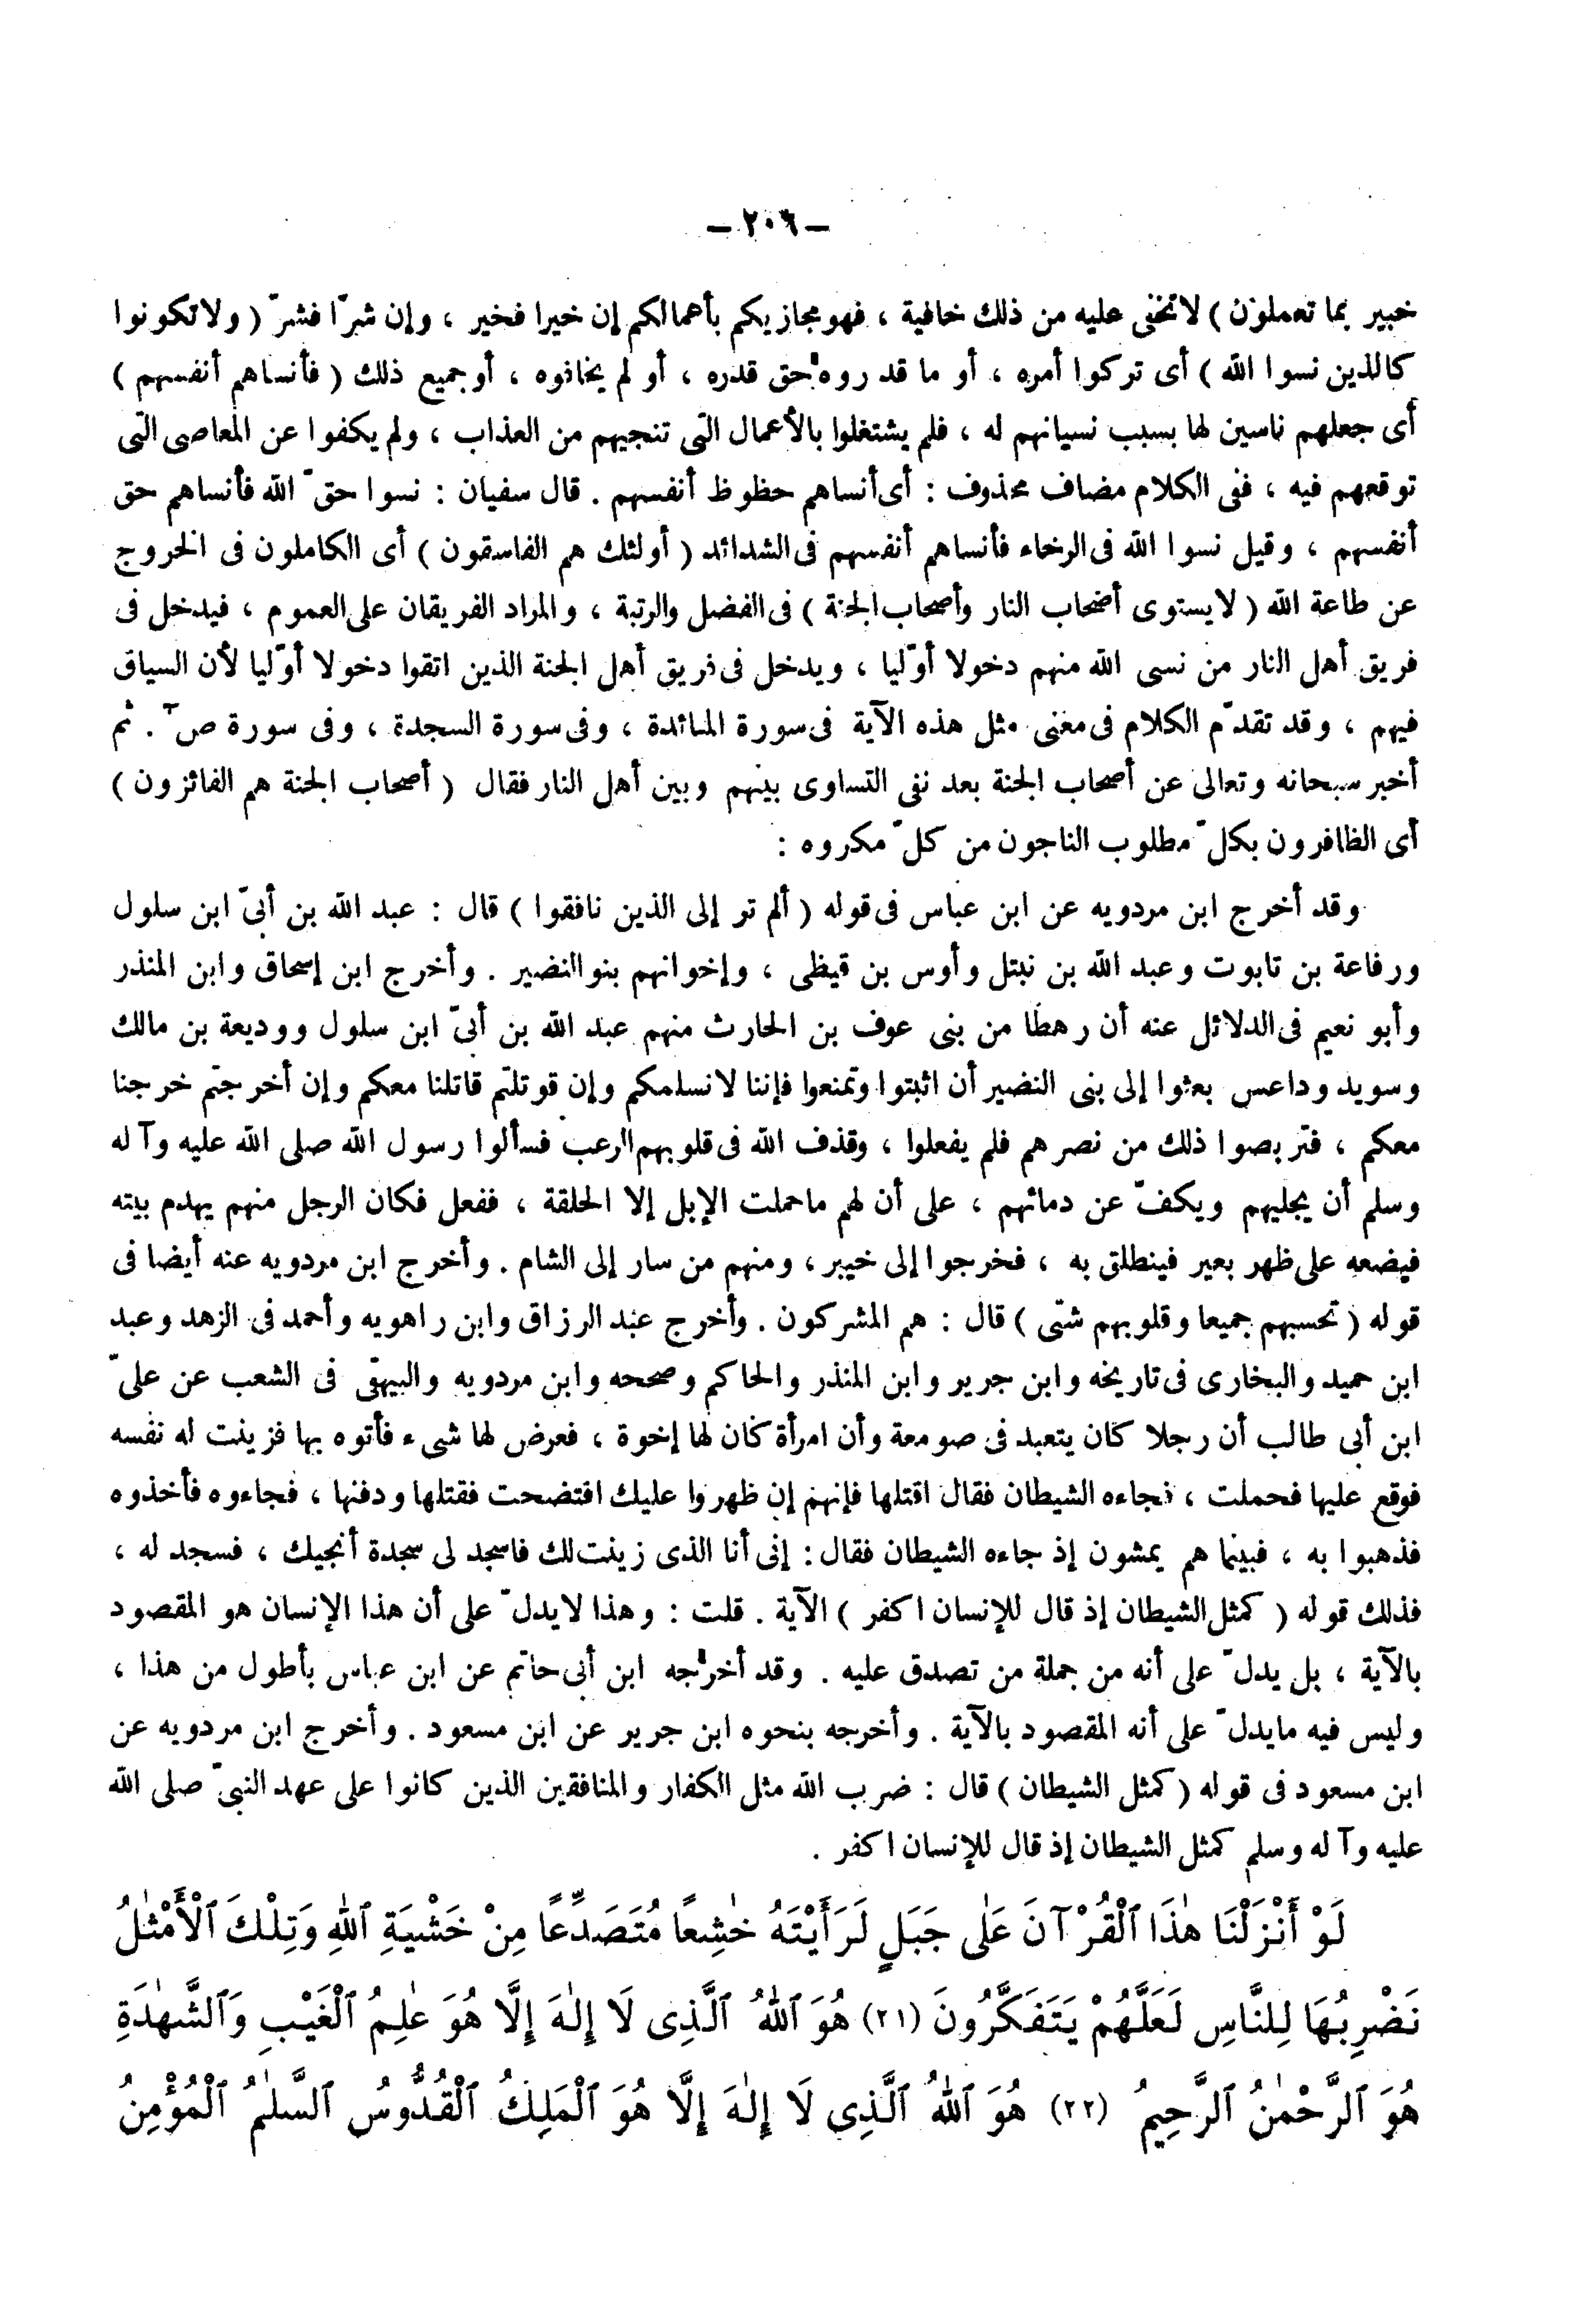 — ٢٠٦ —
خبير بما تعملون ) لاتخفى عليه من ذلك خافية ، فهو مجازيكم بأعمالكم إن خيرا فخير ، وإن شرّا فشرّ ( ولاتكونوا
كالذين نسوا الله ) أى تركوا أمره ، أو ما قدروه حق قدره ، أو لم يخافوه ، أو جميع ذلك ( فأنساهم أنفسهم )
أى جعلهم ناسين لها بسبب نسيانهم له ، فلم يشتغلوا بالأعمال التى تنجيهم من العذاب ، ولم يكفوا عن المعاصى التى
توقعهم فيه ، ففى الكلام مضاف محذوف : أى أنساهم حظوظ أنفسهم . قال سفيان : نسوا حقّ الله فأنساهم حق
أنفسهم ، وقيل نسوا الله فى الرخاء فأنساهم أنفسهم فى الشدائد ( أولئك هم الفاسقون ) أى الكاملون فى الخروج
عن طاعة الله ( لايستوى أصحاب النار وأصحاب الجنة ) فى الفضل والرتبة ، والمراد الفريقان على العموم ، فيدخل فى
فريق أهل النار من نسى الله منهم دخولا أوّليا ، ويدخل فى فريق أهل الجنة الذين اتقوا دخولا أوّليا لأن السياق
فيهم ، وقد تقدّم الكلام فى معنى مثل هذه الآية فى سورة المائدة ، وفى سورة السجدة ، وفى سورة صٓ . ثم
أخبر سبحانه وتعالى عن أصحاب الجنة بعد نفى التساوى بينهم وبين أهل النار فقال ( أصحاب الجنة هم الفائزون )
أى الظافرون بكلّ مطلوب الناجون من كلّ مكروه :
وقد أخرج ابن مردويه عن ابن عباس فى قوله ( ألم تر إلى الذين نافقوا ) قال : عبد الله بن أبىّ ابن سلول
ورفاعة بن تابوت وعبد الله بن نبتل وأوس بن قيظى ، وإخوانهم بنو النضير . وأخرج ابن إسحاق وابن المنذر
وأبو نعيم فى الدلائل عنه أن رهطا من بنى عوف بن الحارث منهم عبد الله بن أبىّ ابن سلول ووديعة بن مالك
وسويد وداعس بعثوا إلى بنى النضير أن اثبتوا وتمنعوا فإننا لانسلمكم وإن قوتلتم قاتلنا معكم وإن أخرجتم خرجنا
معكم ، فتربصوا ذلك من نصرهم فلم يفعلوا ، وقذف الله فى قلوبهم الرعب فسألوا رسول الله صلى الله عليه وآله
وسلم أن يجليهم ويكفّ عن دمائهم ، على أن لهم ماحملت الإبل إلا الحلقة ، ففعل فكان الرجل منهم يهدم بيته
فيضعه على ظهر بعير فينطلق به ، فخرجوا إلى خيبر ، ومنهم من سار إلى الشام . وأخرج ابن مردويه عنه أيضا فى
قوله ( تحسبهم جميعا وقلوبهم شتّى ) قال : هم المشركون . وأخرج عبد الرزاق وابن راهويه وأحمد فى الزهد وعبد
ابن حميد والبخارى فى تاريخه وابن جرير وابن المنذر والحاكم وصححه وابن مردويه والبيهقى فى الشعب عن علىّ
ابن أبى طالب أن رجلا كان يتعبد فى صومعة وأن امرأة كان لها إخوة ، فعرض لها شىء فأتوه بها فزينت له نفسه
فوقع عليها فحملت ، فجاءه الشيطان فقال اقتلها فإنهم إن ظهروا عليك افتضحت فقتلها ودفنها ، فجاءوه فأخذوه
فذهبوا به ، فبينما هم يمشون إذ جاءه الشيطان فقال : إنى أنا الذى زينت لك فاسجد لى سجدة أنجيك ، فسجد له ،
فذلك قوله ( كمثل الشيطان إذ قال للإنسان اكفر ) الآية . قلت : وهذا لايدلّ على أن هذا الإنسان هو المقصود
بالآية ، بل يدلّ على أنه من جملة من تصدق عليه . وقد أخرجه ابن أبى حاتم عن ابن عباس بأطول من هذا ،
وليس فيه مايدلّ على أنه المقصود بالآية . وأخرجه بنحوه ابن جرير عن ابن مسعود . وأخرج ابن مردويه عن
ابن مسعود فى قوله ( كمثل الشيطان ) قال : ضرب الله مثل الكفار والمنافقين الذين كانوا على عهد النبىّ صلى الله
عليه وآله وسلم كمثل الشيطان إذ قال للإنسان اكفر .
لَوْ أَنْزَلْنَا هٰذَا ٱلْقُرْآنَ عَلَى جَبَلٍ لَرَأَيْتَهُ خٰشِعًا مُتَصَدِّعًا مِنْ خَشْيَةِ ٱللهِ وَتِلْكَ ٱلْأَمْثٰلُ
نَضْرِبُهَا لِلنَّاسِ لَعَلَّهُمْ يَتَفَكَّرُونَ (٢١) هُوَ ٱللهُ ٱلَّذِى لَا إِلٰهَ إِلَّا هُوَ عٰلِمُ ٱلْغَيْبِ وَٱلشَّهٰدَةِ
هُوَ ٱلرَّحْمٰنُ ٱلرَّحِيمُ (٢٢) هُوَ ٱللهُ ٱلَّذِى لَا إِلٰهَ إِلَّا هُوَ ٱلْمَلِكُ ٱلْقُدُّوسُ ٱلسَّلٰمُ ٱلْمُؤْمِنُ